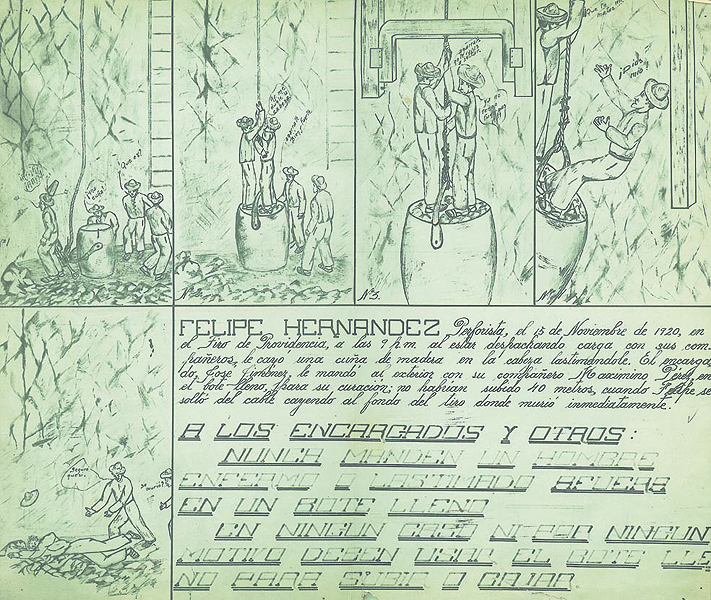 Que es?
¡Dios mio!
Nº3.
FELIPE HERNANDEZ Perforista, el 15 de Noviembre de 1920, en
el Tiro de Providencia, a las 9 h.m. al estar deshachando carga con sus com
pañeros, le cayó una cuña de madera en la cabeza lastimandole. El encarga
do, José Jiménez, le mandó al exterior con su compañero Maximino Pérez en
el bote lleno, para su curación; no habian subido 40 metros, cuando Felipe se
soltó del cable cayendo al fondo del tiro donde murió inmediatamente.
A LOS ENCARGADOS Y OTROS:
NUNCA MANDEN UN HOMBRE
ENFERMO O LASTIMADO AFUERA
EN UN BOTE LLENO
EN NINGUN CASO NI POR NINGUN
MOTIVO DEBEN USAR EL BOTE LLE
NO PARA SUBIR O BAJAR